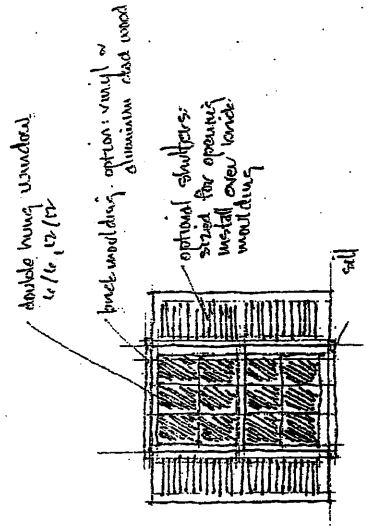 double hung window
6/6, 12/12
brick moulding. option: vinyl or
aluminum clad wood
optional shutters:
sized for opening
install over brick
moulding
sill